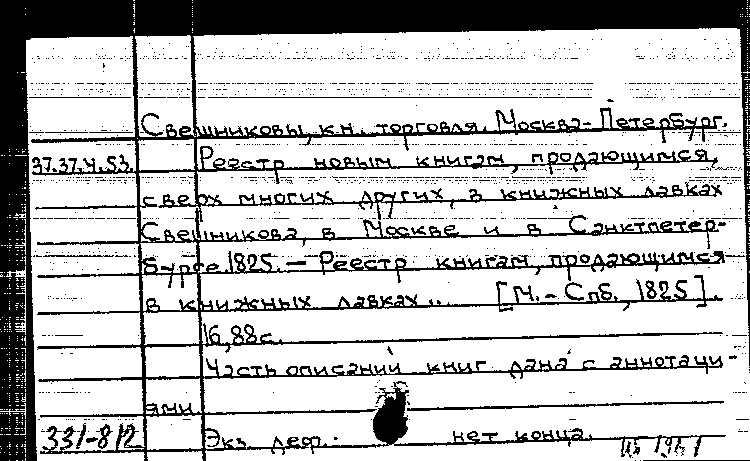 Свешниковы, кн. торговля. Москва - Петербург.
37.37.4.53. Реестр новым книгам, продающимся,
сверх многих других, в книжных лавках
Свешникова, в Москве и в Санктпетер-
бурге. 1825. — Реестр книгам, продающимся
в книжных лавках .. [М. - Спб., 1825].
16,88 с.
Часть описаний книг дана с аннотаци-
ями
331-812 Экз. деф.: нет конца.